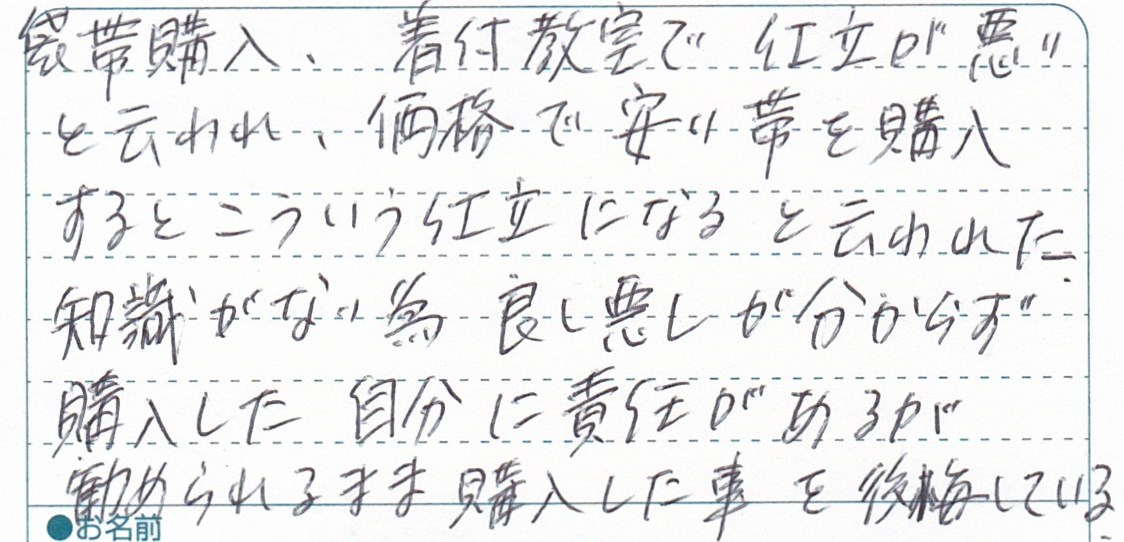 袋帯購入、着付教室で仕立が悪い
と云われ、価格で安い帯を購入
するとこういう仕立になると云われた.
知識がない為良し悪しが分からず
購入した自分に責任があるが
勧められるまま購入した事を後悔している.
●お名前